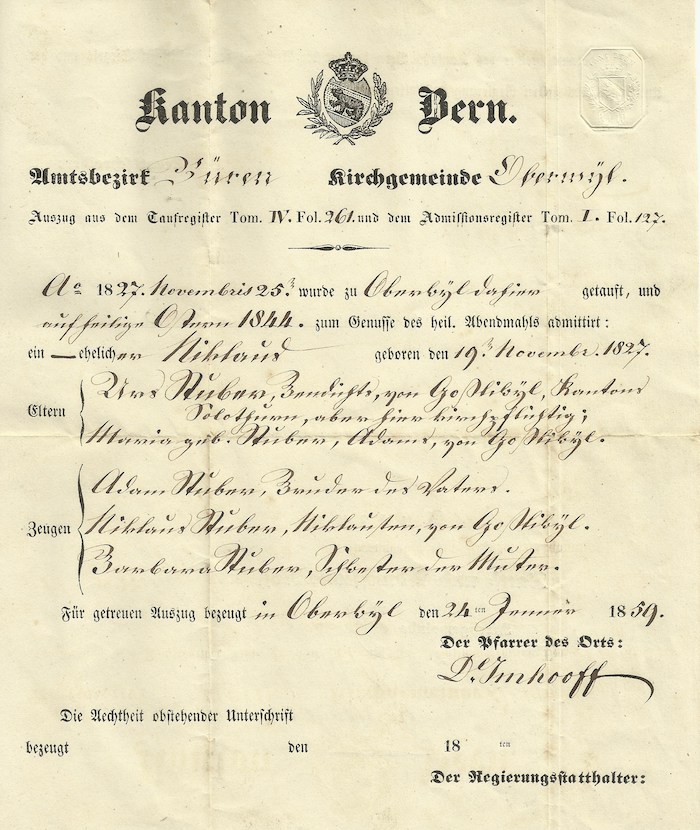 Kanton Bern.
Amtsbezirk Büren Kirchgemeinde Oberwyl.
Auszug aus dem Taufregister Tom. IV. Fol. 261. und dem Admissionsregister Tom. I. Fol. 127.
Ao 1827. Novembris 25.t wurde zu Oberwyl dahier getauft, und
auf heilige Ostern 1844. zum Genusse des heil. Abendmahls admittirt:
ein — ehelicher Niklaus geboren den 19.t Novembr. 1827.
Eltern
Urs Stuber, Bendichts, von Goßliwyl, Kantons
Solothurn, aber hier kirchpflichtig;
Maria geb. Stuber, Adams, von Goßliwyl.
Zeugen
Adam Stuber, Bruder des Vaters.
Niklaus Stuber, Niklausen, von Goßliwyl.
Barbara Stuber, Schwester der Muter.
Für getreuen Auszug bezeugt in Oberwyl den 24ten Jenner 1859.
Der Pfarrer des Orts:
Dr. Imhooff
Die Aechtheit obstehender Unterschrift
bezeugt den 18 ten
Der Regierungsstatthalter: